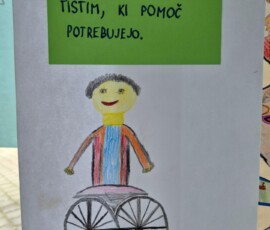 TISTIM, KI POMOČ
POTREBUJEJO.